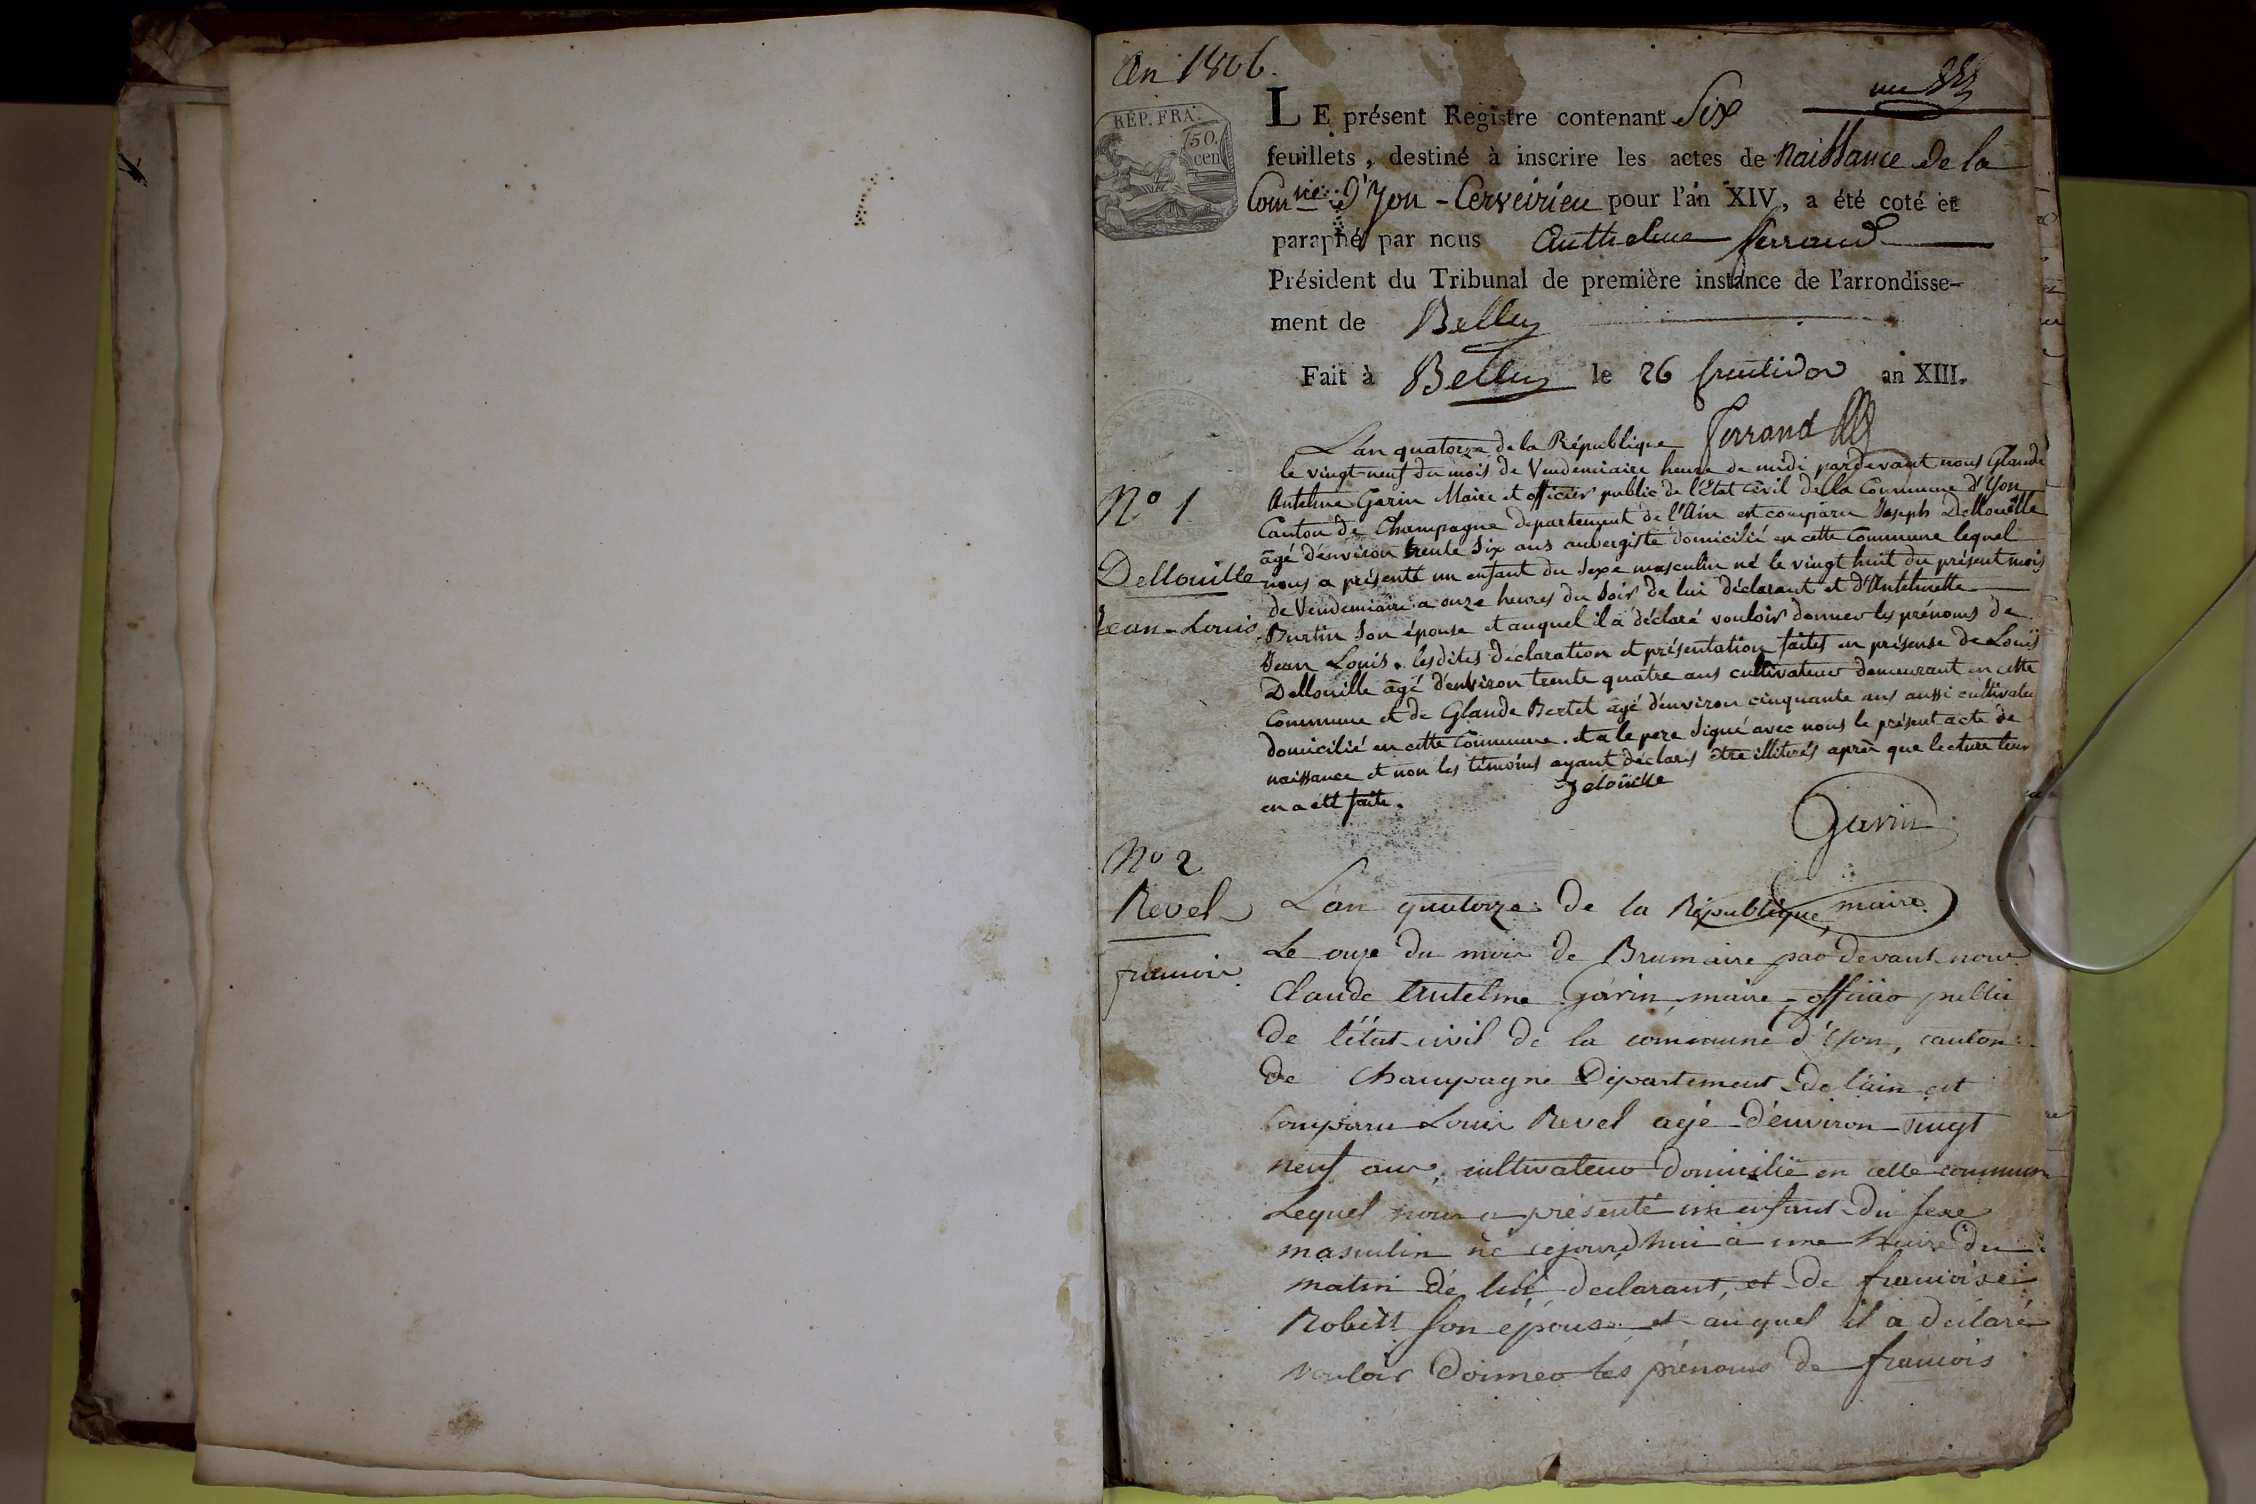 An 1806.
un
REP. FRA.
50.
cen
LE présent Registre contenant Six
feuillets, destiné à inscrire les actes de naissance de la
Comne d'Yon - Cerveirieu pour l'an XIV, a été coté et
paraphé par nous Anthelme ferrand
Président du Tribunal de première instance de l'arrondisse-
ment de Belley
Fait à Belley le 26 fructidor an XIII.
ferrand
L'an quatorze de la République
le vingt-neuf du mois de Vendemiaire heure de midi pardevant nous Glaude
Antelme Garin Maire et officier public de l'Etat civil de la Commune d'Yon
Canton de Champagne departement de l'Ain est comparu Joseph Dellouille
âgé d'environ trente Six ans aubergiste domicilié en cette Commune lequel
nous a présenté un enfant du Sexe masculin né le vingt huit du présent mois
de Vendemiaire a onze heures du Soir de lui déclarant et d'Antelmette
Burtin Son épouse et auquel il a déclaré vouloir donner les prénoms de
Jean Louis. lesdites déclaration et présentation faites en présense de Louis
Dellouille âgé d'environ trente quatre ans cultivateur demeurant en cette
Commune et de Glaude Bertet âgé d'environ cinquante ans aussi cultivateu
domicilié en cette Commune. et a le pere Signé avec nous le présent acte de
naissance et non les témoins ayant déclarés être illiterés après que lecture leur
en a eté faite.
Jelouille
Garin
maire.
N° 1
Dellouille
Jean-Louis.
N° 2
Revel
francois.
L'an quatorze de la République
Le onze du mois de Brumaire par devant nous
Claude Antelme Garin, maire, officier public
de l'état-civil de la commune d'Yon, canton
de Champagne Département de l'ain est
comparu Louis Revel agé d'environ vingt
neuf ans, cultivateur domicilié en cette commun
Lequel nous a présenté un enfant du sexe
masculin né cejourd'hui à une heure du
matin de lui declarant, et de francoise
Robert son épouse et auquel il a déclaré
vouloir donner les prénoms de francois